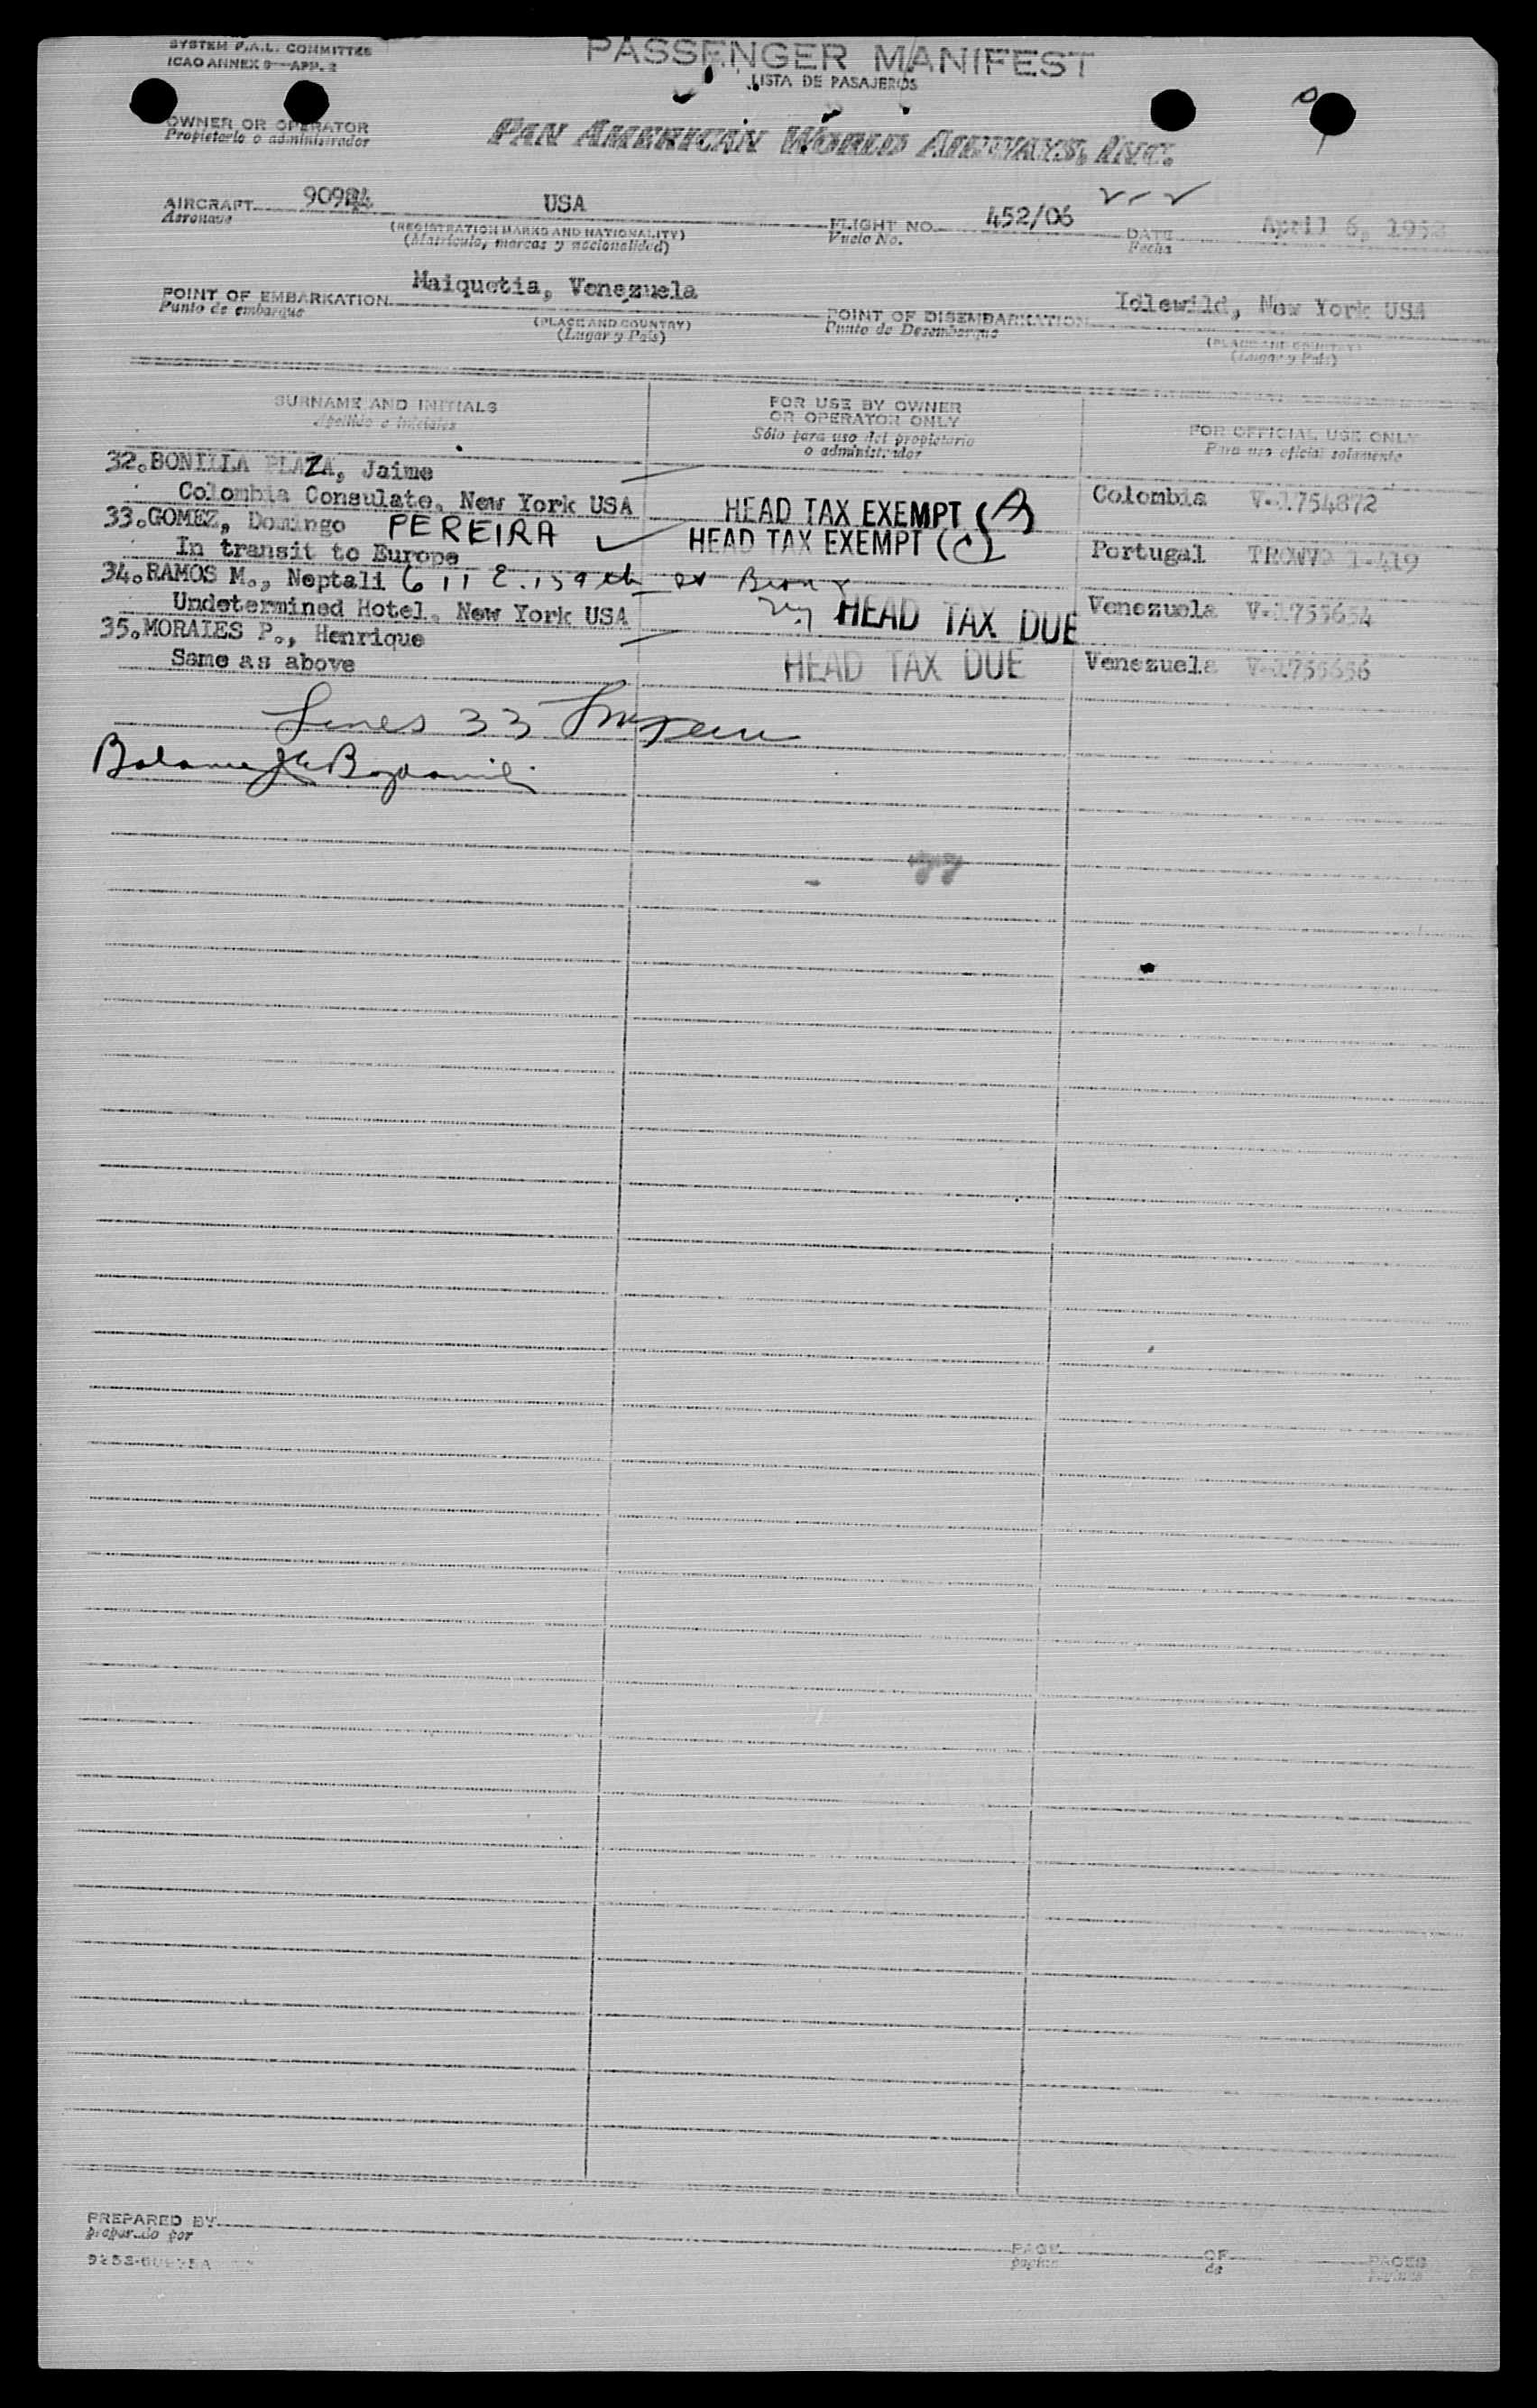 SYSTEM F.A.L. COMMITTEE
ICAO ANNEX 9—APP. 2
PASSENGER MANIFEST
LISTA DE PASAJEROS
OWNER OR OPERATOR
Propietario o administrador
PAN AMERICAN WORLD AIRWAYS, INC.
AIRCRAFT 9098 USA
Aeronave
(REGISTRATION MARKS AND NATIONALITY)
(Matricula, marcas y nacionalidad)
FLIGHT NO. 452/06
Vuelo No.
DATE April 6, 1952
Fecha
POINT OF EMBARKATION Maiquetia, Venezuela
Punto de embarque
(PLACE AND COUNTRY)
(Lugar y País)
POINT OF DISEMBARKATION Idlewild, New York USA
Punto de Desembarque
(PLACE AND COUNTRY)
(Lugar y País)
SURNAME AND INITIALS
Apellido e iniciales
FOR USE BY OWNER
OR OPERATOR ONLY
Sólo para uso del propietario
o administrador
FOR OFFICIAL USE ONLY
Para uso oficial solamente
32.BONILLA PLAZA, Jaime
Colombia Consulate, New York USA HEAD TAX EXEMPT (A) Colombia V-1754872
33.GOMEZ, Domingo PEREIRA HEAD TAX EXEMPT (C)
In transit to Europe Portugal 1-419
34.RAMOS M., Neptali 611 E. 159th st Bronx
Undetermined Hotel, New York USA NY HEAD TAX DUE Venezuela V-1755654
35.MORALES P., Henrique
Same as above HEAD TAX DUE Venezuela V-1755656
Lines 33
Balance
PREPARED BY
preparado por
PAGE OF PAGES
pagina de paginas